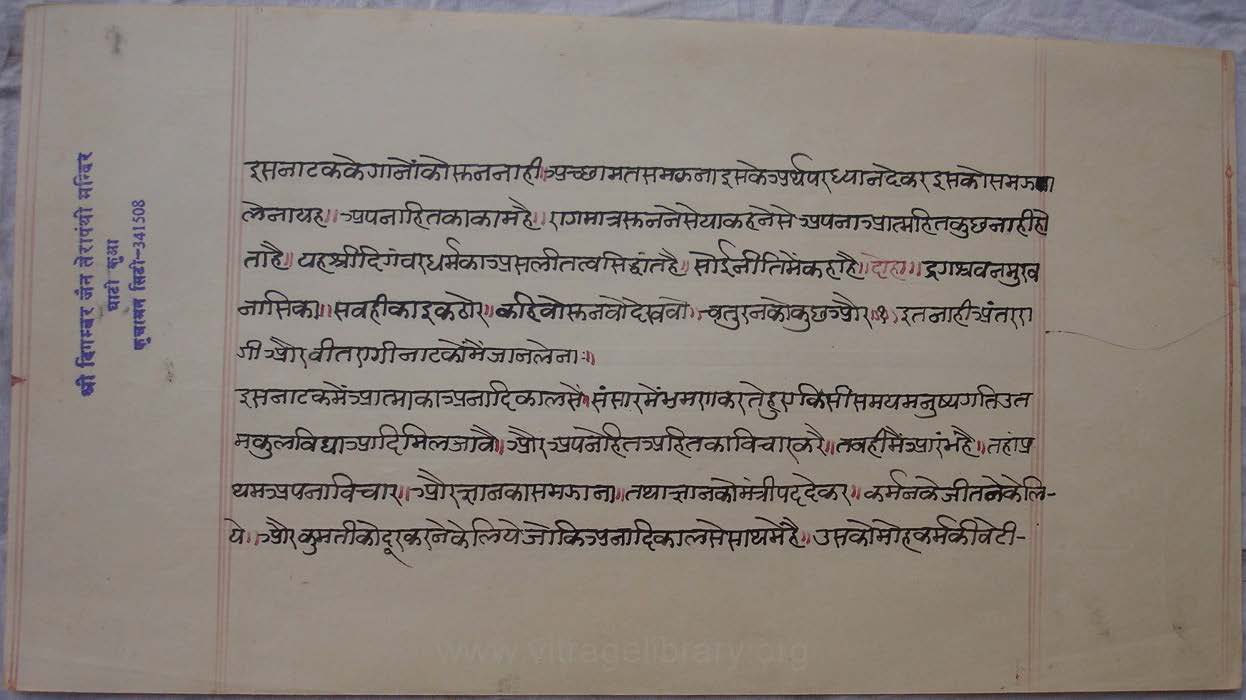 श्री दिगम्बर जैन तेरापंथी मन्दिर
घाटी कुआ
कुचामन सिटी-341508
इसनाटककेगानोंकोसुननाही॥अच्छामतसमझनाइसकेअर्थपरध्यानदेकरइसकोसमझ
लेनायह॥अपनाहितकाकामहै॥रागमात्रसुननेसेयाकहनेसेअपनाआत्महितकुछनाहीहो
ताहै॥यहश्रीदिगंवरधर्मकाअसलीतत्वसिद्धांतहै॥सोईनीतिमेंकहाहै॥दोहा॥द्रगश्रवनमुख
नासिका॥सवहीकाइकठोर॥कहिवोसुनवोदेखवो॥चतुरनकोकुछऔर॥१॥इतनाहीअंतररा
गीऔरवीतरागीनाटकोंमेंजानलेना॥
इसनाटकमेंआत्माकाअनादिकालसें॥संसारमेंभ्रमणकरतेहुएकिसीसमयमनुष्यगतिउत
मकुलविद्याआदिमिलजावै॥औरअपनेहितअहितकाविचारकरै॥तवहीसेंआरंभहै॥तहांप्र
थमअपनाविचार॥औरज्ञानकासमझाना॥तथाज्ञानकोमंत्रीपददेकर॥कर्मनकेजीतनेकेलि-
ये॥औरकुमतीकोदूरकरनेकेलियेजोकिअनादिकालसेसाथमेंहै॥उसकोमोहकर्मकीवेटी-
www.vitragelibrary.org